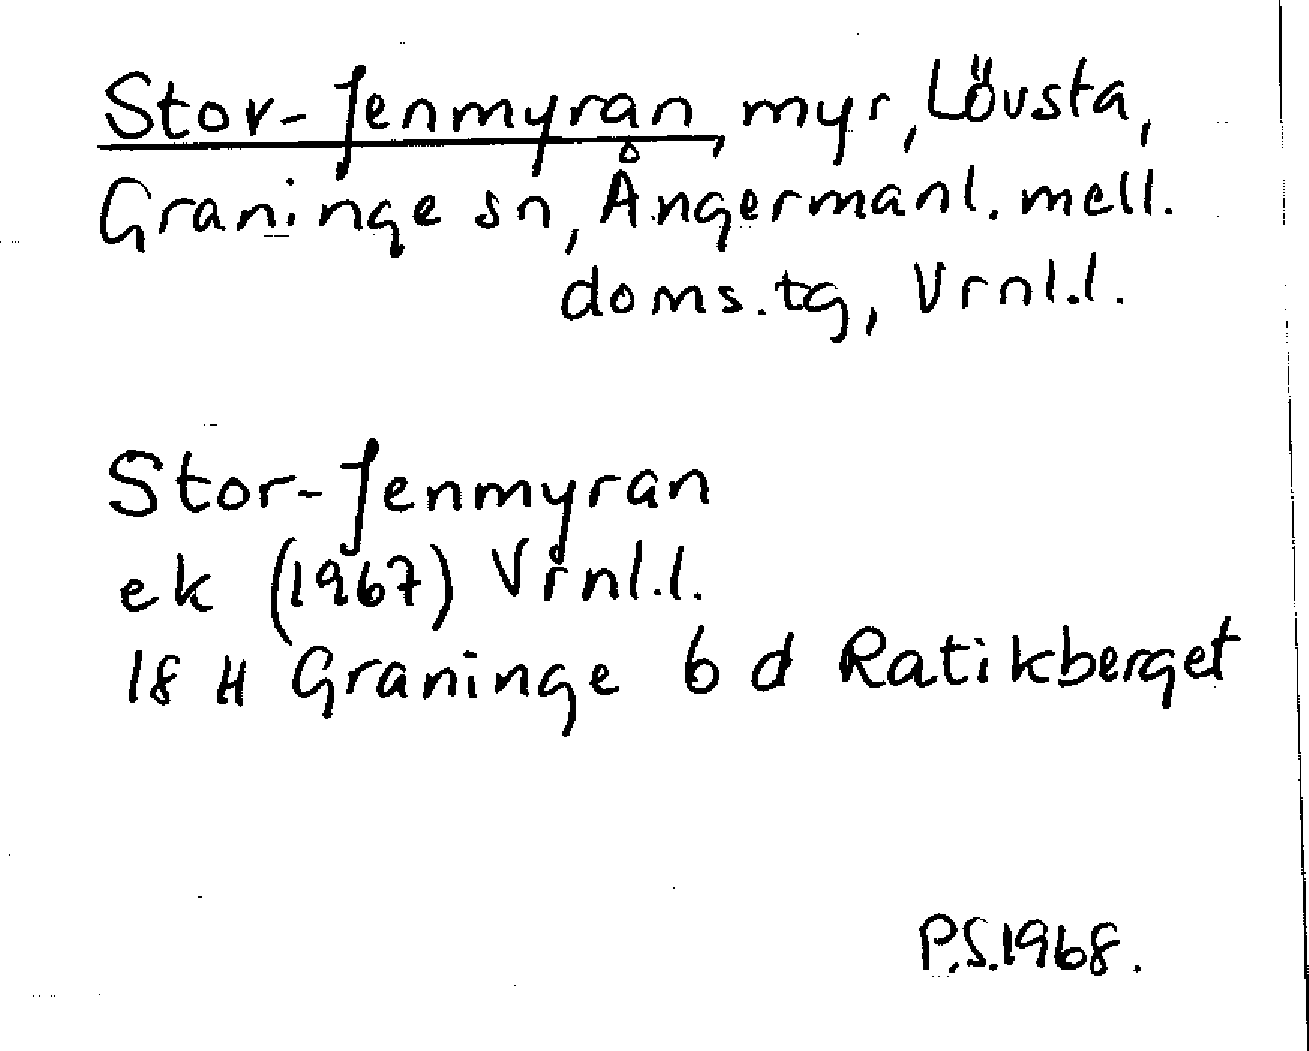 Stor-Jenmyran, myr, Lövsta,
Graninge sn, Ångermanl. mell.
doms.tg, Vrnl.l.
Stor-Jenmyran
ek (1967) Vrnl.l.
18 H Graninge 6 d Ratikberget
P.S.1968.